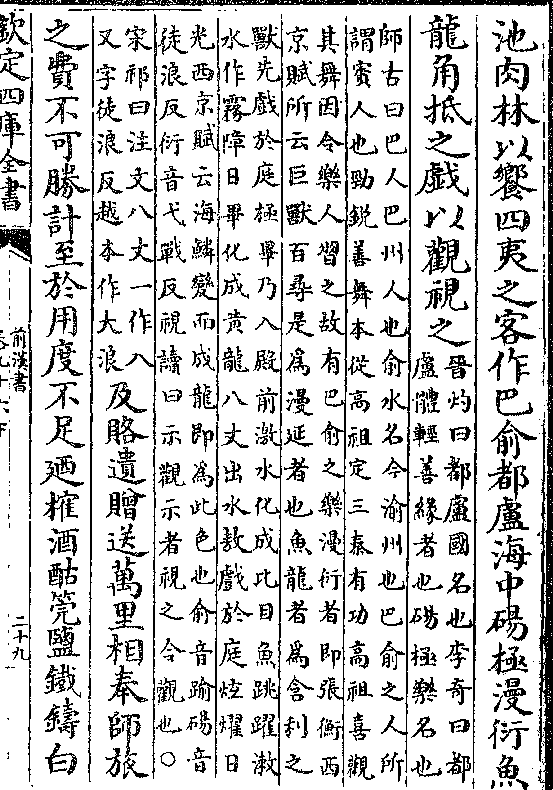 池肉林以饗四夷之客作巴俞都盧海中碭極漫衍魚
龍角抵之戲以觀視之晉灼曰都盧國名也李奇曰都
盧體輕善緣者也碭極樂名也
師古曰巴人巴州人也俞水名今渝州也巴俞之人所
謂賨人也勁銳善舞本從高祖定三秦有功高祖喜觀
其舞因令樂人習之故有巴俞之樂漫衍者即張衡西
京賦所云巨獸百尋是為漫延者也魚龍者為含利之
獸先戲於庭極畢乃入殿前激水化成比目魚跳躍漱
水作霧障日畢化成黃龍八丈出水敖戲於庭炫燿日
光西京賦云海鱗變而成龍即為此色也俞音踰碭音
徒浪反衍音弋戰反視讀曰示觀示者視之令觀也○
宋祁曰注文八丈一作八
又字徒浪反越本作大浪
及賂遺贈送萬里相奉師旅
之費不可勝計至於用度不足廼榷酒酤筦鹽鐵鑄白
欽定四庫全書
前漢書
卷九十六下
二十九